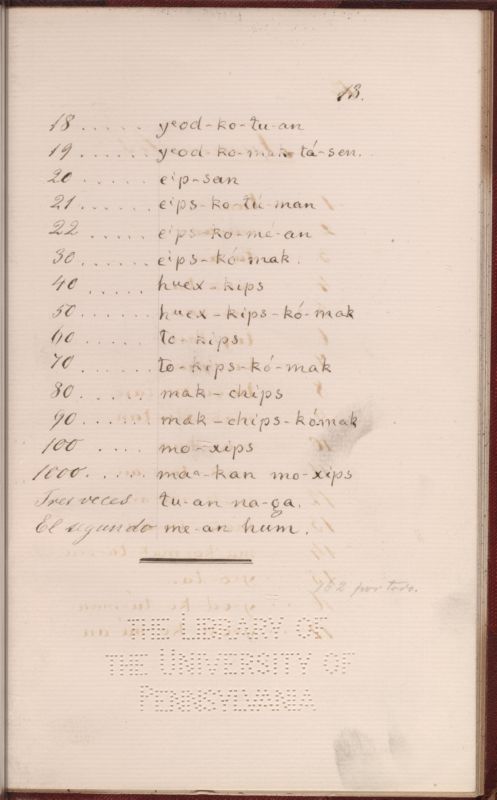 13.
18 ...... yeod-ko-tu-an
19 ...... yeod-ko-mak tá-sen.
20 ...... eip-san
21 ...... eips-ko-tú-man
22 ...... eips-ko-mé-an
30 ...... eips-kó-mak.
40 ...... huex-kips
50 ...... huex-kips-kó-mak
60 ...... to-kips
70 ...... to-kips-kó-mak
80 ...... mak-chips
90 ...... mak-chips-kómak
100 .... mo-xips
1000 ..... maa-kan mo-xips
Tres veces tu-an na-ga.
El segundo me-an hum.
162 por todo.
THE LIBRARY OF
THE UNIVERSITY OF
PENNSYLVANIA